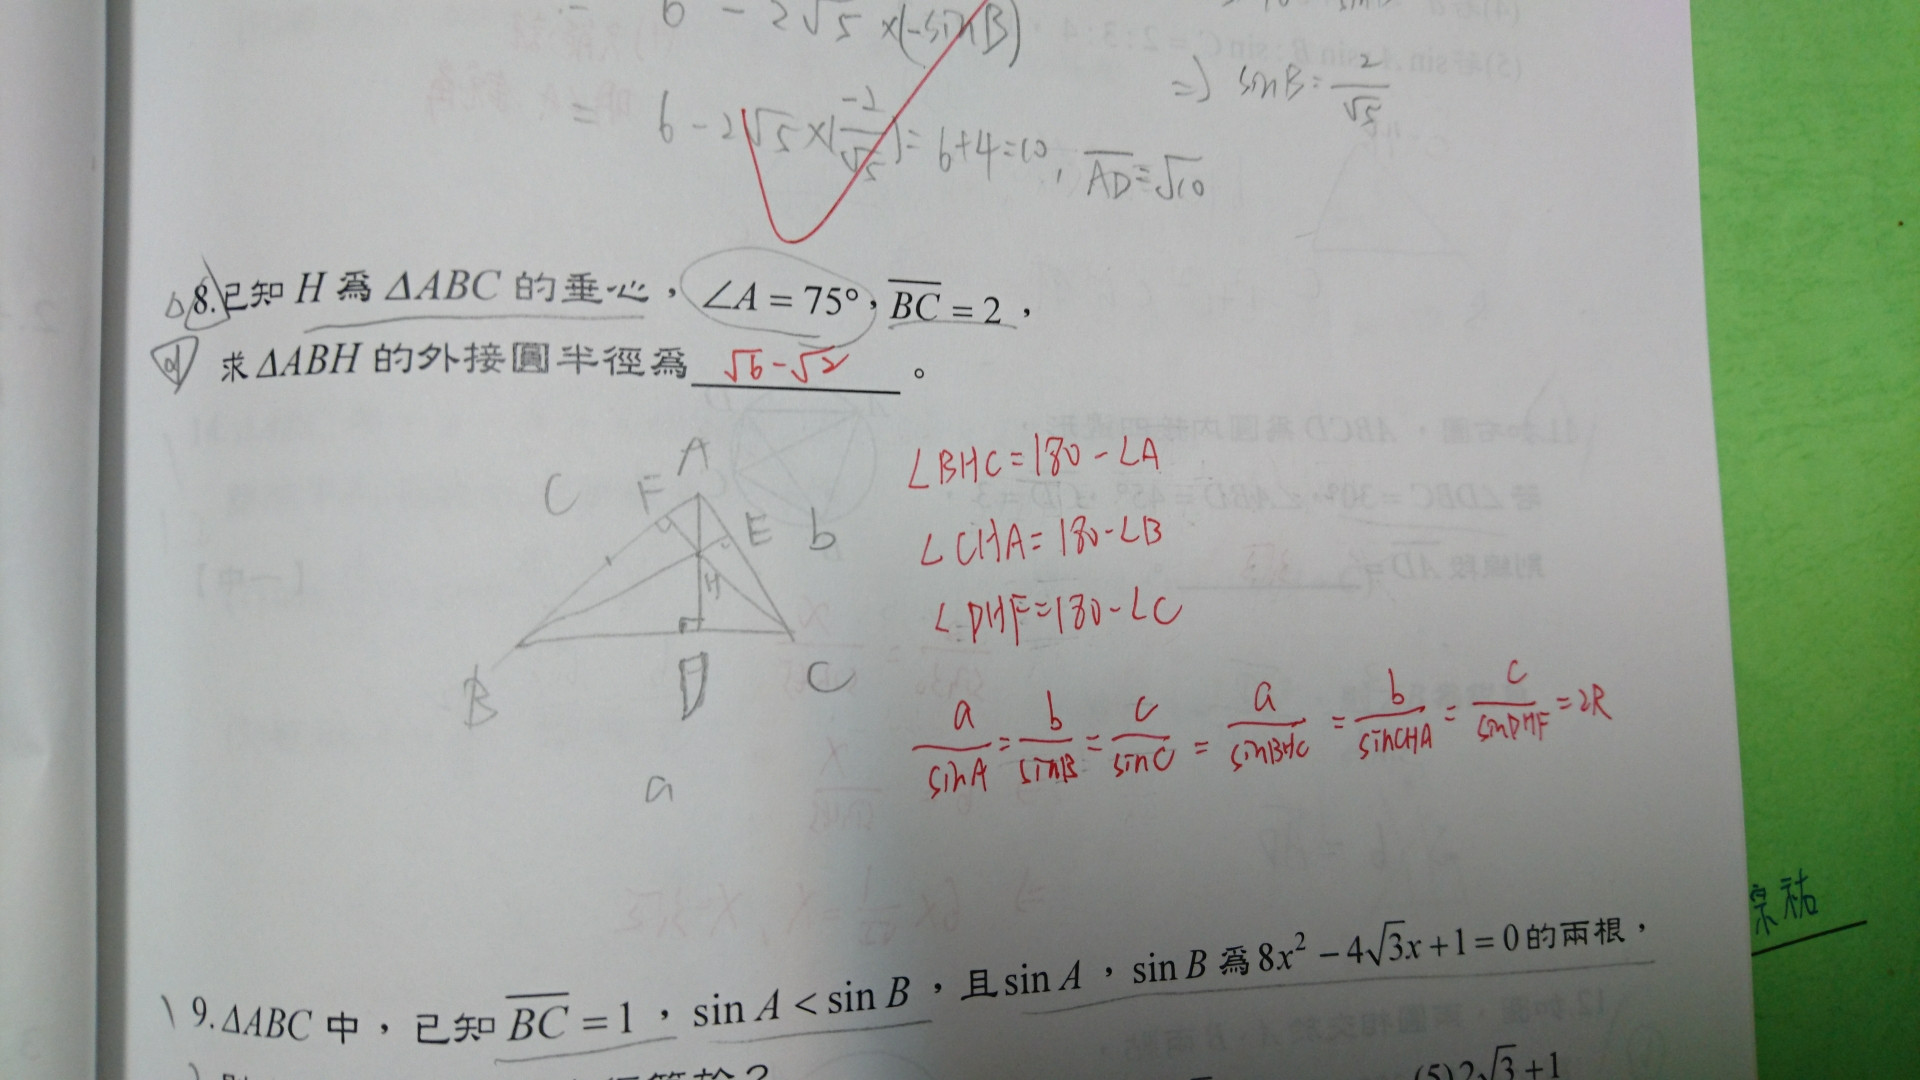 6 - 2√5 ×(-sinB)
⇒ sinB = 2/√5
= 6 - 2√5 ×(-2/√5) = 6+4=10, AD=√10
△8.已知 H 為 ΔABC 的垂心，∠A = 75°，BC = 2，
求 ΔABH 的外接圓半徑為 √6-√2 。
A
C F E b
H
B D C
a
∠BHC = 180 - ∠A
∠CHA = 180 - ∠B
∠DHF = 180 - ∠C
a/sinA = b/sinB = c/sinC = a/sinBHC = b/sinCHA = c/sinDHF = 2R
宗祐
9.ΔABC 中，已知 BC = 1，sin A < sin B，且 sin A，sin B 為 8x² − 4√3x + 1 = 0 的兩根，
(5)2√3+1